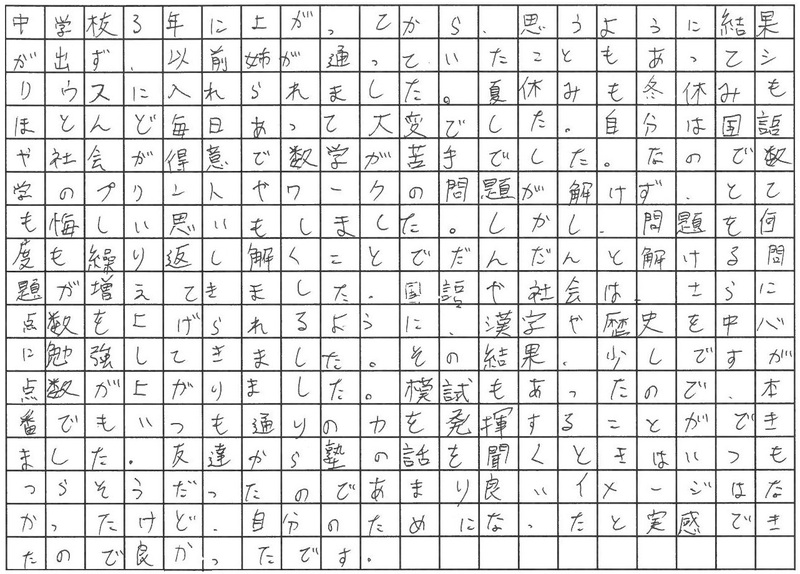 中学校3年に上がってから、思うように結果
が出ず、以前姉が通っていたこともあってシ
リウスに入れられました。夏休みも冬休みも
ほとんど毎日あって大変でした。自分は国語
や社会が得意で数学が苦手でした。なので数
学のプリントやワークの問題が解けず、とて
も悔しい思いもしました。しかし、問題を何
度も繰り返し解くことでだんだんと解ける問
題が増えてきました。国語や社会は、さらに
点数を上げられるように、漢字や歴史を中心
に勉強してきました。その結果、少しですが
点数が上がりました。模試もあったので、本
番でもいつも通りの力を発揮することができ
ました。友達から塾の話を聞くときはいつも
つらそうだったのであまり良いイメージはな
かったけど、自分のためになったと実感でき
たので良かったです。